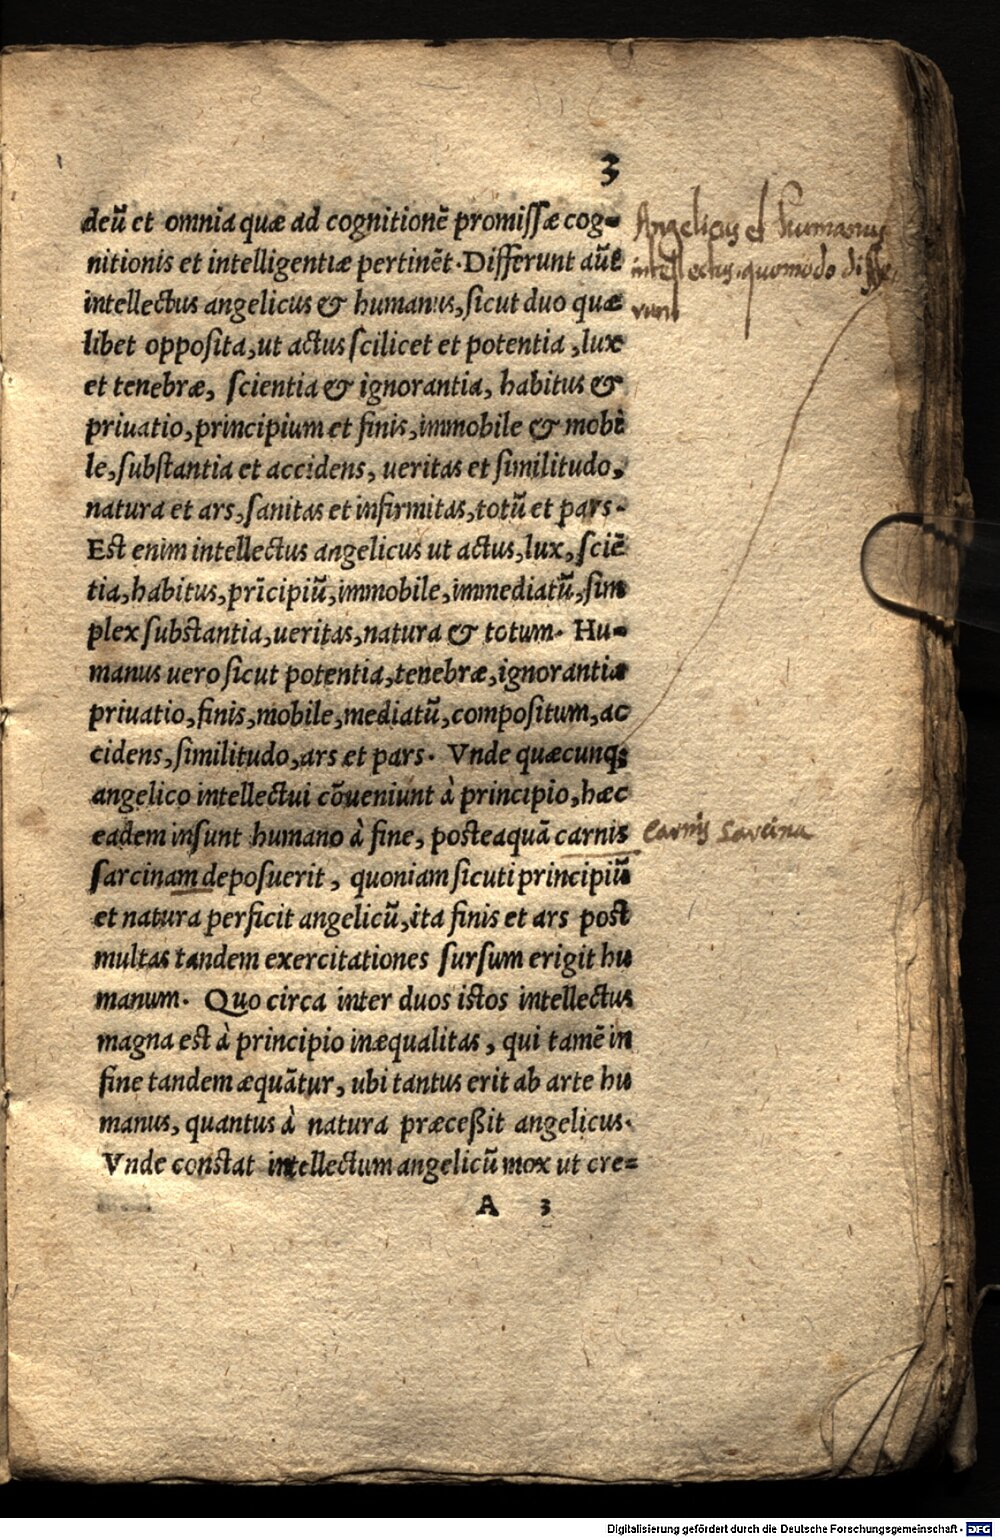 3
deū et omnia quæ ad cognitionē promissæ cog-
nitionis et intelligentiæ pertinēt. Differunt aūt
intellectus angelicus & humanus, sicut duo quæ
libet opposita, ut actus scilicet et potentia, lux
et tenebræ, scientia & ignorantia, habitus &
priuatio, principium et finis, immobile & mobi
le, substantia et accidens, ueritas et similitudo,
natura et ars, sanitas et infirmitas, totū et pars.
Est enim intellectus angelicus ut actus, lux, sciē
tia, habitus, prīcipiū, immobile, immediatū, sim
plex substantia, ueritas, natura & totum. Hu-
manus uero sicut potentia, tenebræ, ignorantia
priuatio, finis, mobile, mediatū, compositum, ac
cidens, similitudo, ars et pars. Vnde quæcunq;
angelico intellectui cōueniunt à principio, hæc
eadem insunt humano à fine, posteaquā carnis
sarcinam deposuerit, quoniam sicuti principiū
et natura perficit angelicū, ita finis et ars post
multas tandem exercitationes sursum erigit hu
manum. Quo circa inter duos istos intellectus
magna est à principio inæqualitas, qui tamē in
fine tandem æquātur, ubi tantus erit ab arte hu
manus, quantus à natura præceßit angelicus.
Vnde constat intellectum angelicū mox ut cre=
A 3
Angelicus et humanus
intellectus quomodo diffe
runt
Carnis Sarcina
Digitalisierung gefördert durch die Deutsche Forschungsgemeinschaft - DFG